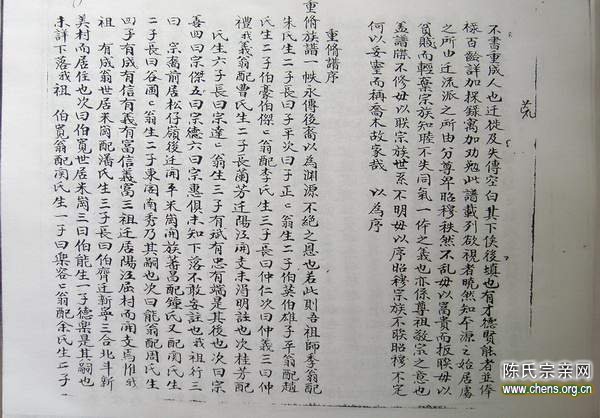 不書重成人也迁徙及失傳空白其下俟後填也有才德賢能者並俸
祿百齡詳加採錄寓加勸勉此譜載列欲視者曉然知本源之始居處
之所由迁流派之所由分尊卑昭穆秩然不乱毋以富貴而扳联毋以
貧賤而輕棄宗族知睦不失同氣一体之義也亦係尊祖敬宗之意也
盖譜牒不修毋以联宗族世系不明毋以序昭穆宗族不联昭穆不定
何以妥靈而稱喬木故家哉 以為序
重脩譜序
重脩族譜一帙永傳後裔以為渊源不絶之思也若此則吾祖師季翁配
朱氏生二子長曰子平次曰子正翁生二子伯英伯雄子平翁配趙
氏生二子伯豪伯傑翁配李氏生三子長曰仲仁次曰仲義三曰仲
禮我義翁配曹氏生二子長蘭芳迁陽江開支未淂明註也次桂芳配
氏生六子長曰宗達翁生三子有斌有忠有端是其後也次曰宗
喜四曰宗傑五曰宗德六曰宗惠俱未知下落不敢妄註也我祖行三
曰 宗裔前居松仔嶺後迁開平米崗開族蕃昌配鍾氏又配関氏生
二子長曰谷國翁生二子東閣南秀乃其嗣也次曰能翁配周氏生
四子有成有信有義有富信義富三祖迁居陽江屈村而開支焉惟我
祖 有成翁世居米崗配潘氏生三子長曰伯齊迁新寧三合北斗新
美村而居住也次曰伯寬世居米崗三曰伯能生一子德樂是其嗣也
未詳下落我祖 伯寬翁配関氏生一子曰樂容翁配余氏生二子
陈氏宗亲网
www.chens.org.cn